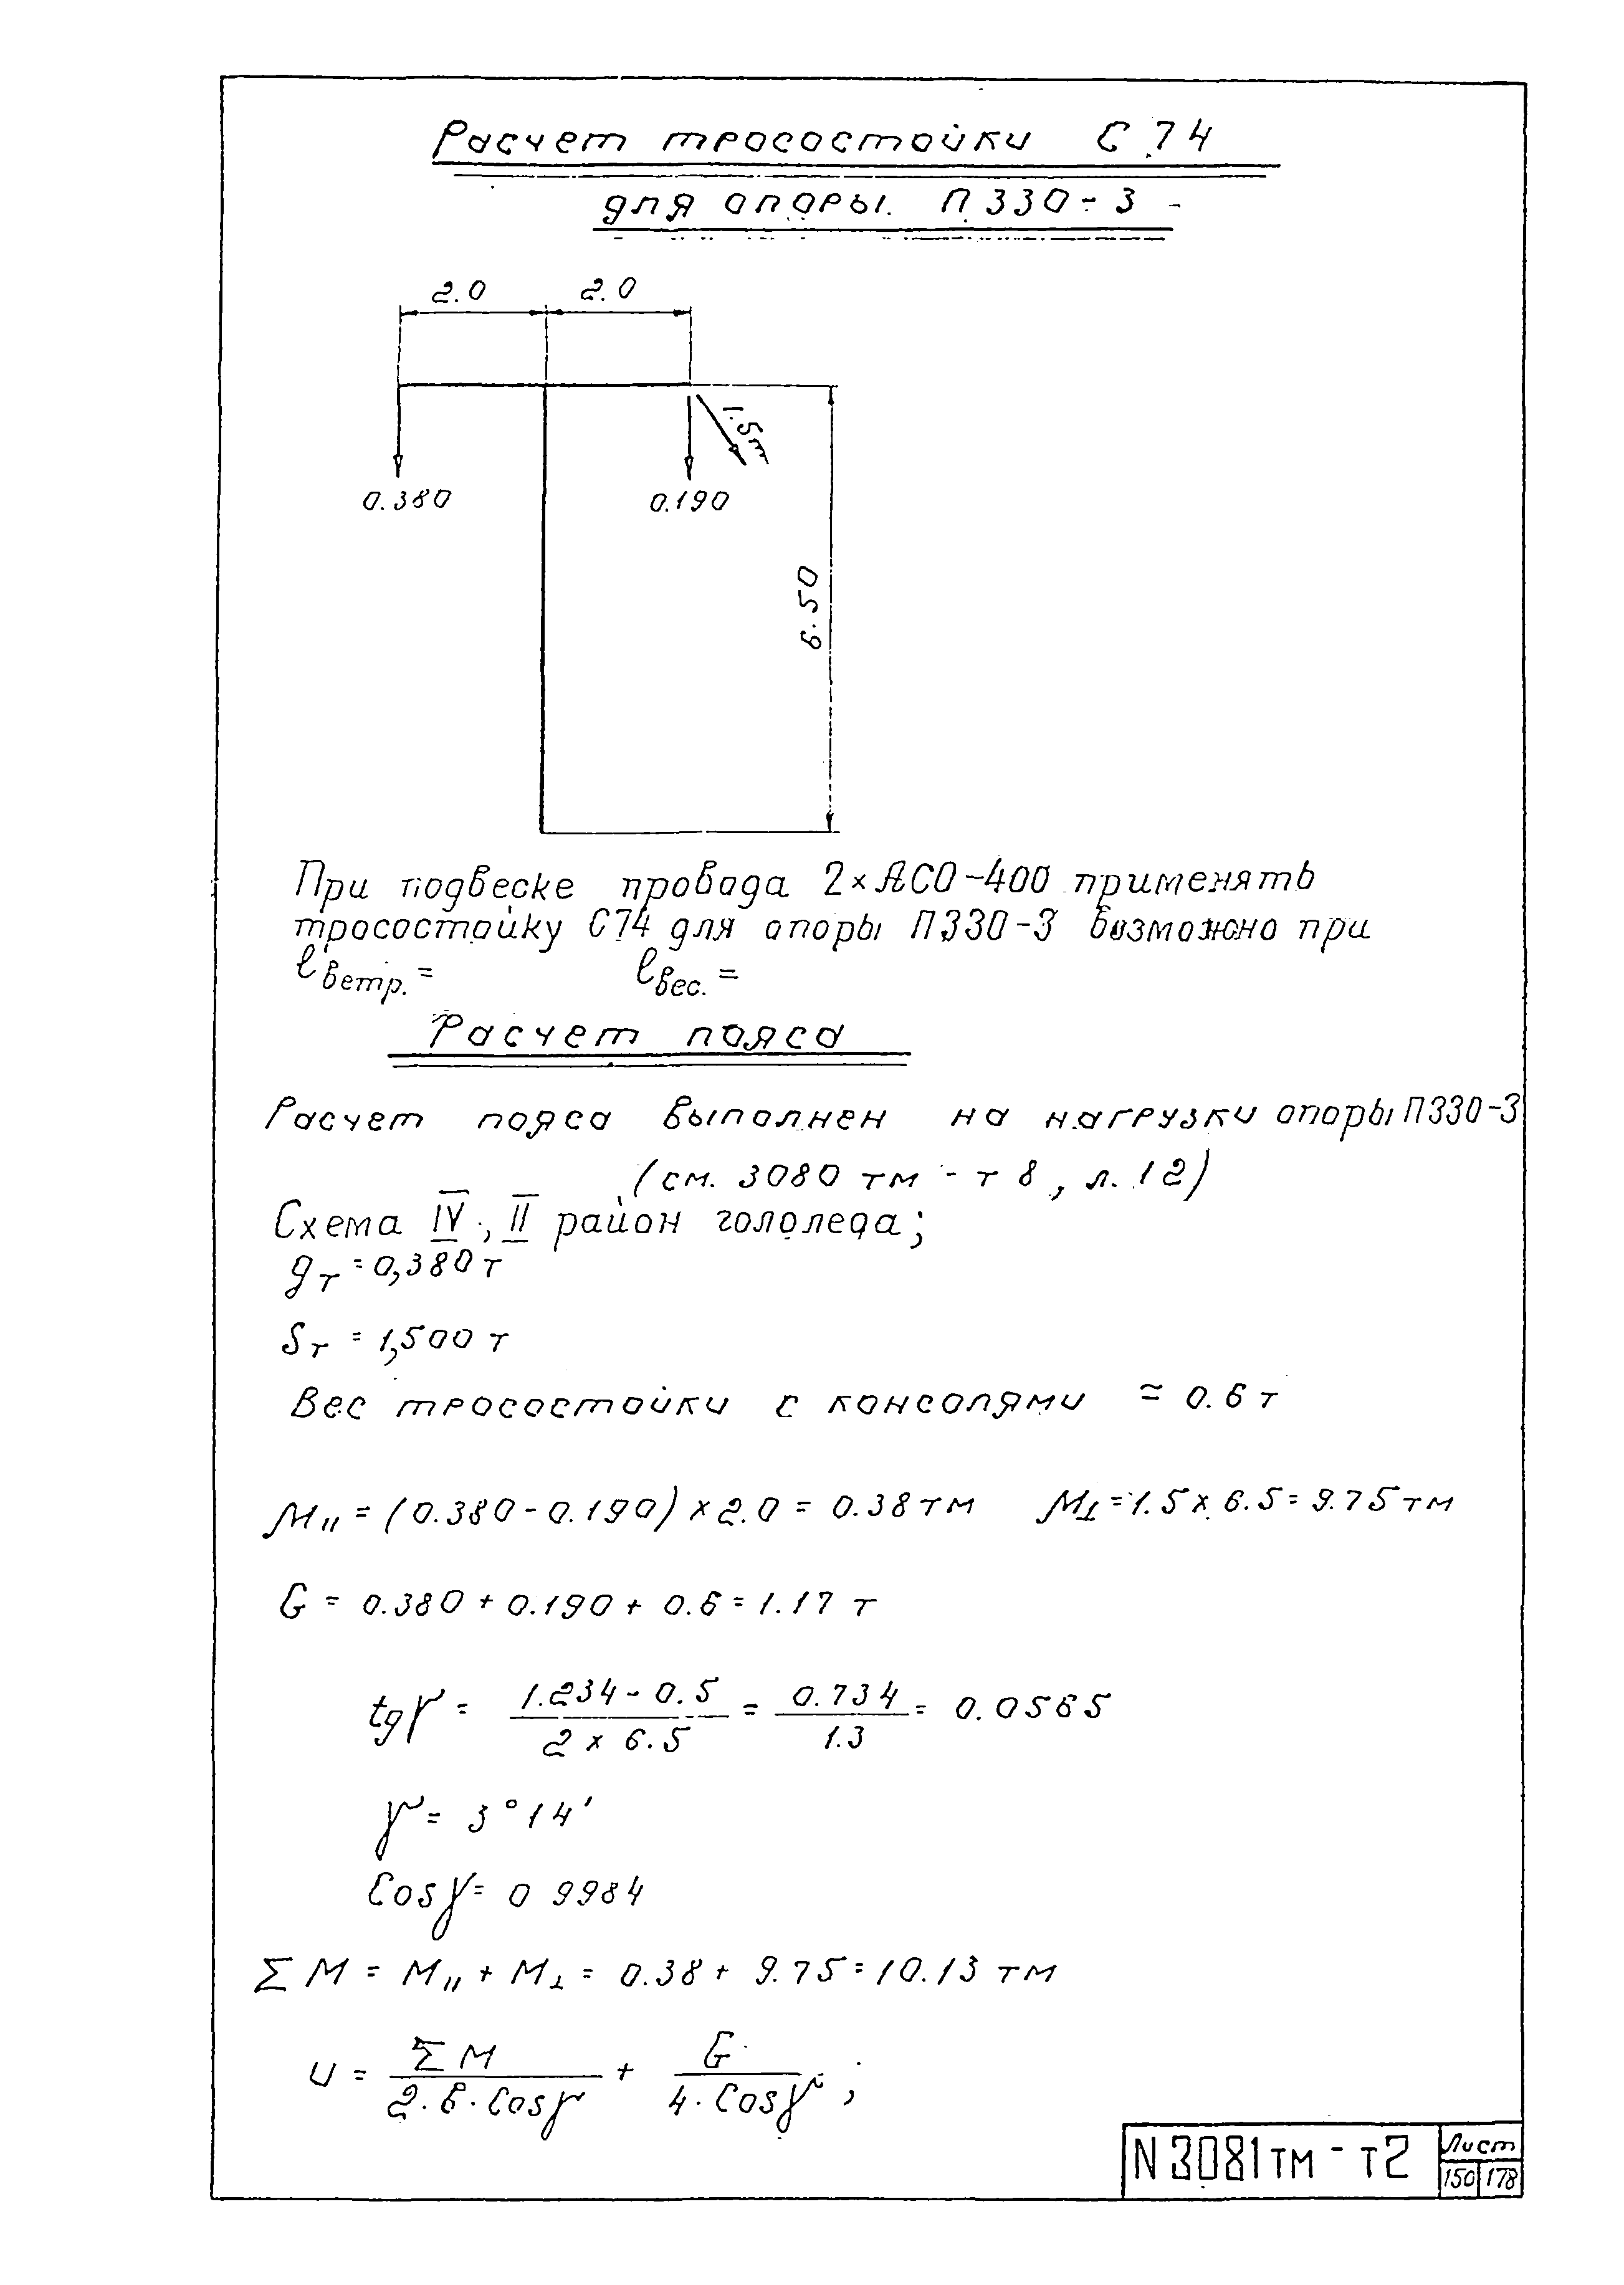 Расчет тросостойки С 74
для опоры. П 330-3 -
2.0 2.0
1.5т
0.380 0.190
6.50
При подвеске провода 2×АСО-400 применять
тросостойку С74 для опоры П330-3 возможно при
ℓветр. = ℓвес. =
Расчет пояса
Расчет пояса выполнен на нагрузки опоры П330-3
(см. 3080 тм - т 8, л. 12)
Схема IV, II район гололеда;
gт = 0,380 т
Sт = 1,500 т
Вес тросостойки с консолями ≈ 0.6 т
M׀׀ = (0.380 - 0.190) × 2.0 = 0.38 тм M⊥ = 1.5 × 6.5 = 9.75 тм
G = 0.380 + 0.190 + 0.6 = 1.17 т
tgγ = (1.234 - 0.5) / (2 × 6.5) = 0.734 / 1.3 = 0.0565
γ = 3°14'
Cosγ = 0 9984
Σ M = M׀׀ + M⊥ = 0.38 + 9.75 = 10.13 тм
U = Σ M / (2 · в · Cosγ) + G / (4 · Cosγ);
N 3081тм - т2 Лист
150 178